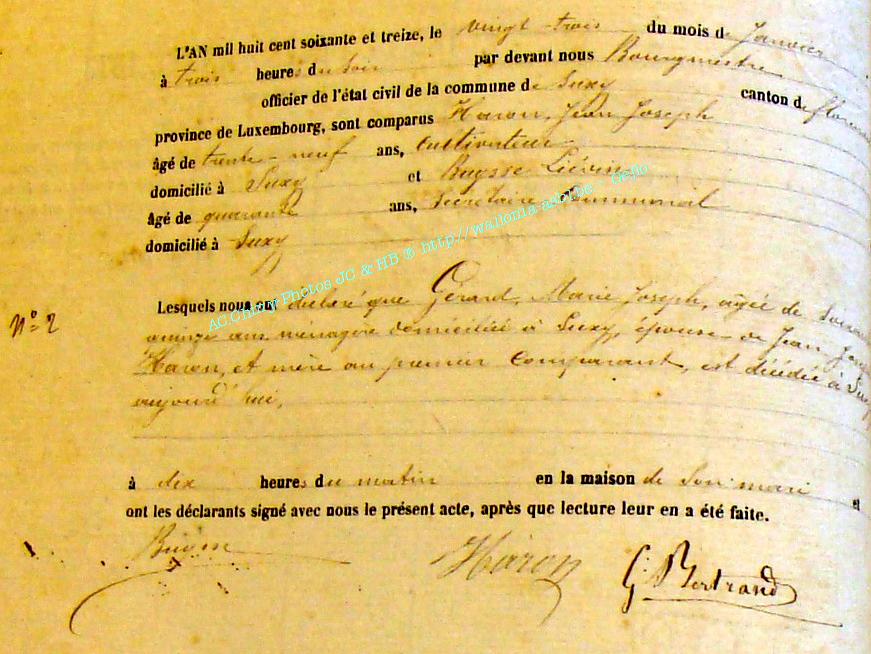 L'AN mil huit cent soixante et treize, le vingt-trois du mois de Janvier
à trois heures du soir par devant nous Bourgmestre
officier de l'état civil de la commune de Suxy canton de
province de Luxembourg, sont comparus Haron, Jean Joseph
âgé de trente-neuf ans, Cultivateur
domicilié à Suxy et Buysse Liévin
âgé de quarante ans, Secrétaire Communal
domicilié à Suxy
AC.Chiny Photos JC & HB ® http://wallonia-asbl.be -
Lesquels nous ont déclaré que Gérard, Marie Joseph, agée de
N° 2
quinze ans ménagère domiciliée à Suxy, épouse de Jean
Haron, et mère au premier Comparant, est décédée à
aujourd'hui,
à dix heures du matin en la maison de son mari et
ont les déclarants signé avec nous le présent acte, après que lecture leur en a été faite.
Haron G. Bertrand